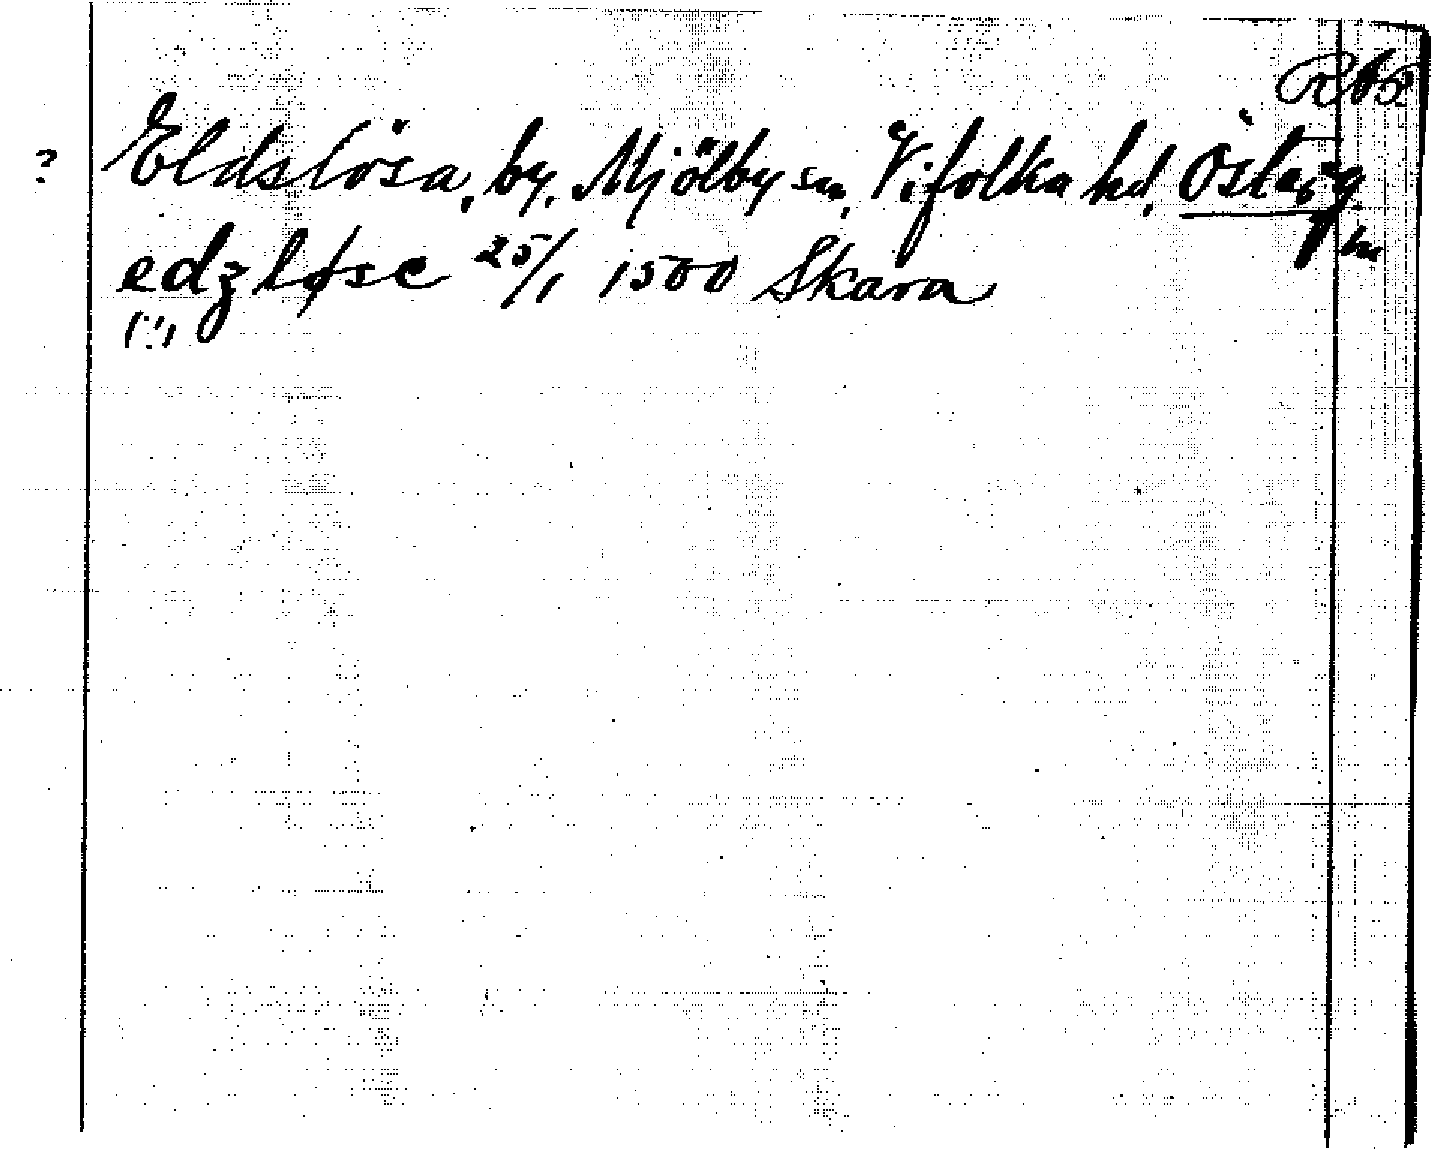 ? Eldslösa, by, Mjölby sn, Vifolka hd, Österg.
edzløse 25/1 1500 Skara
(!)